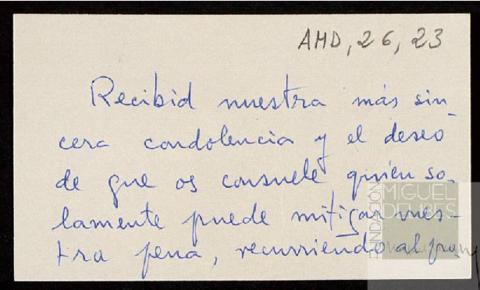 AMD, 26, 23
Recibid nuestra más sin-
cera condolencia y el deseo
de que os consuele quien so-
lamente puede mitigar vues-
tra pena, recurriendo al
FUNDACIÓN
MIGUEL
DELIBES